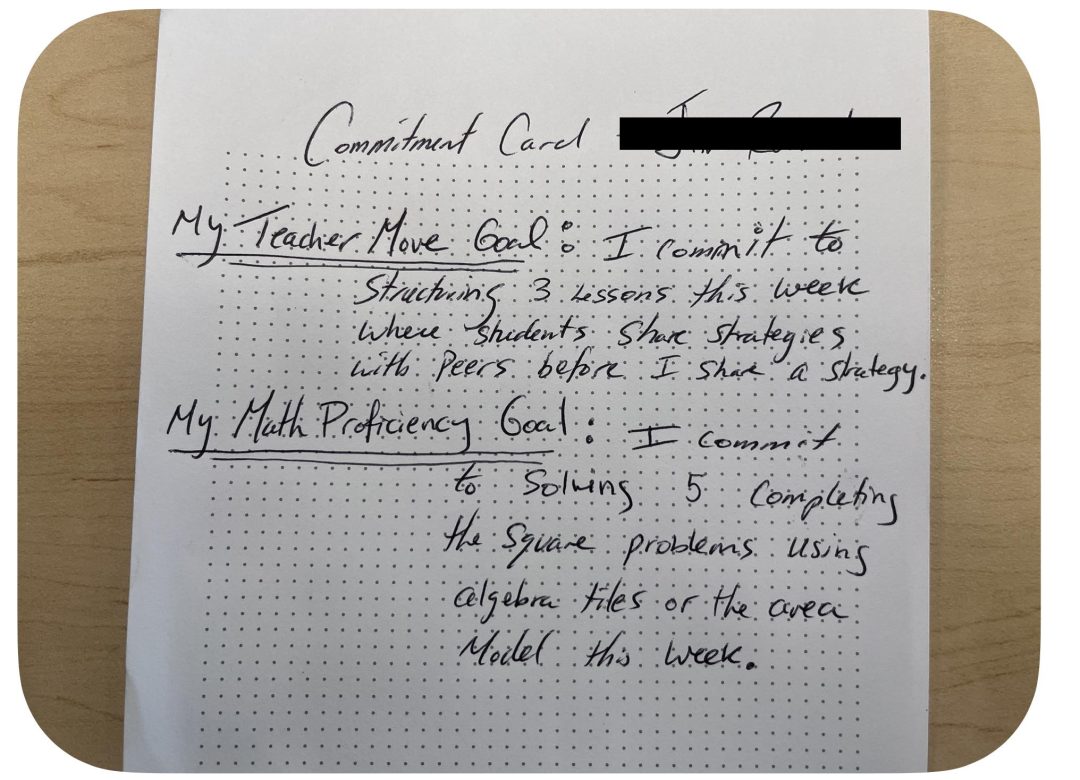 Commitment Card
My Teacher Move Goal: I commit to
Structuring 3 Lessons this week
where students share strategies
with Peers before I share a strategy.
My Math Proficiency Goal: I commit
to Solving 5 Completing
the Square problems using
algebra tiles or the area
Model this week.